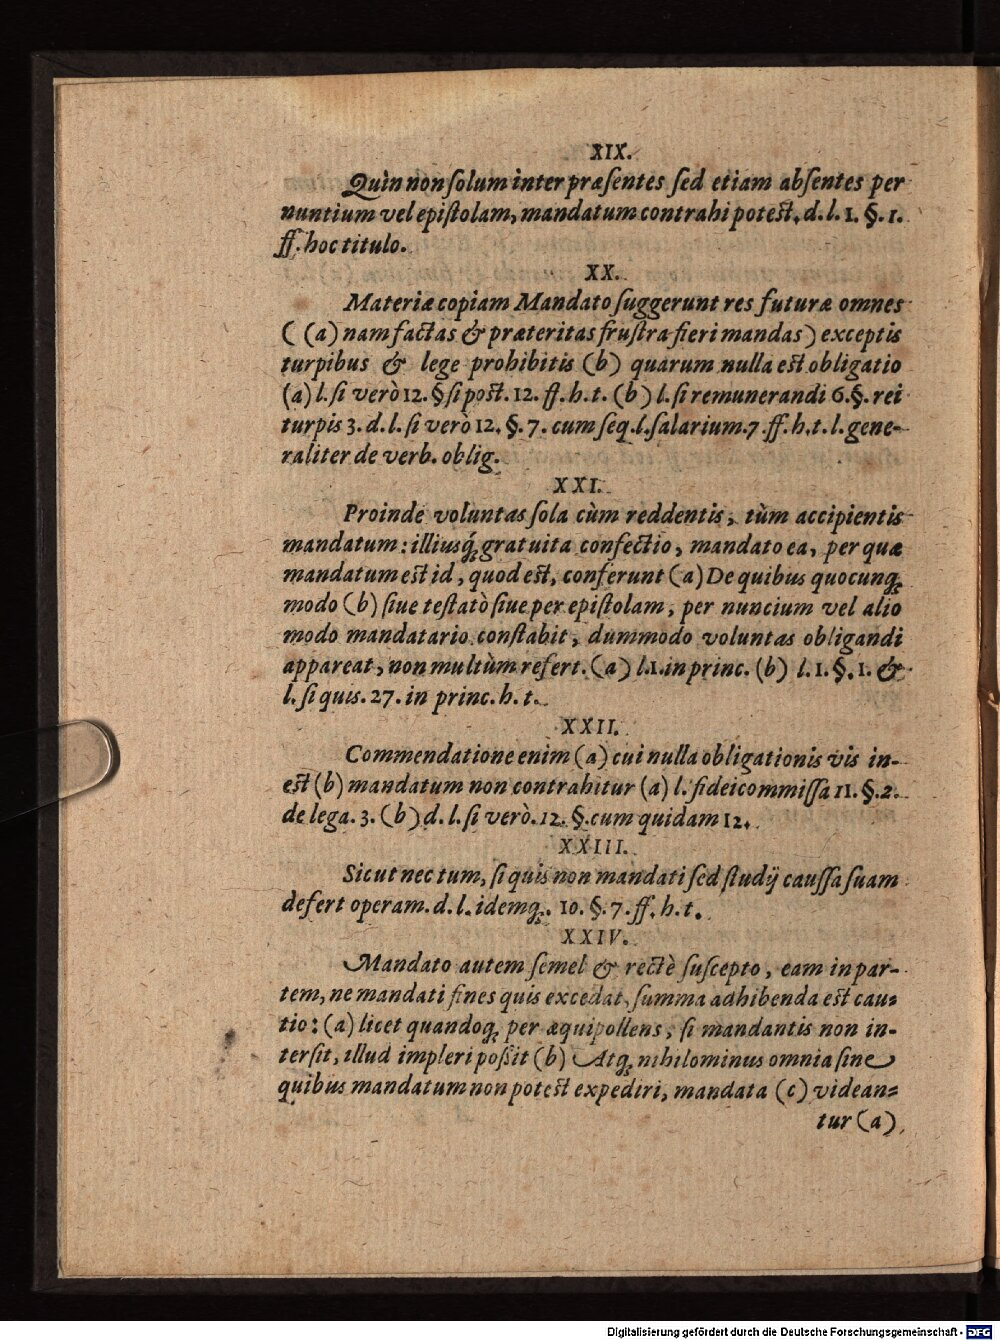 XIX.
Quìn non ſolum inter præſentes ſed etiam abſentes per
nuntium vel epiſtolam, mandatum contrahi poteſt. d. l. 1. §. 1.
ff. hoc titulo.
XX.
Materiæ copiam Mandato ſuggerunt res futuræ omnes
( (a) nam factas & præteritas fruſtra fieri mandas) exceptis
turpibus & lege prohibitis (b) quarum nulla eſt obligatio
(a) l. ſi verò 12. § ſi poſt. 12. ff. h. t. (b) l. ſi remunerandi 6. §. rei
turpis 3. d. l. ſi verò 12. §. 7. cum ſeq. l. ſalarium. 7. ff. h. t. l. gene-
raliter de verb. oblig.
XXI.
Proinde voluntas ſola cùm reddentis, tùm accipientis
mandatum: illiusq́; gratuita confectio, mandato ea, per quæ
mandatum eſt id, quod eſt, conferunt (a) De quibus quocunq;
modo (b) ſiue teſtatò ſiue per epiſtolam, per nuncium vel alio
modo mandatario conſtabit, dummodo voluntas obligandi
appareat, non multùm refert. (a) l. 1. in princ. (b) l. 1. §. 1. &
l. ſi quis. 27. in princ. h. t.
XXII.
Commendatione enim (a) cui nulla obligationis vis in-
eſt (b) mandatum non contrahitur (a) l. fideicommiſſa 11. §. 2.
de lega. 3. (b) d. l. ſi verò. 12. §. cum quidam 12.
XXIII.
Sicut nec tum, ſi quis non mandati ſed ſtudij cauſſa ſuam
defert operam. d. l. idemq;. 10. §. 7. ff. h. t.
XXIV.
Mandato autem ſemel & rectè ſuſcepto, eam in par-
tem, ne mandati fines quis excedat, ſumma adhibenda eſt cau-
tio: (a) licet quandoq; per æquipollens, ſi mandantis non in-
terſit, illud impleri poſſit (b) Atq; nihilominus omnia ſine
quibus mandatum non poteſt expediri, mandata (c) videan-
tur (a)
Digitalisierung gefördert durch die Deutsche Forschungsgemeinschaft - DFG